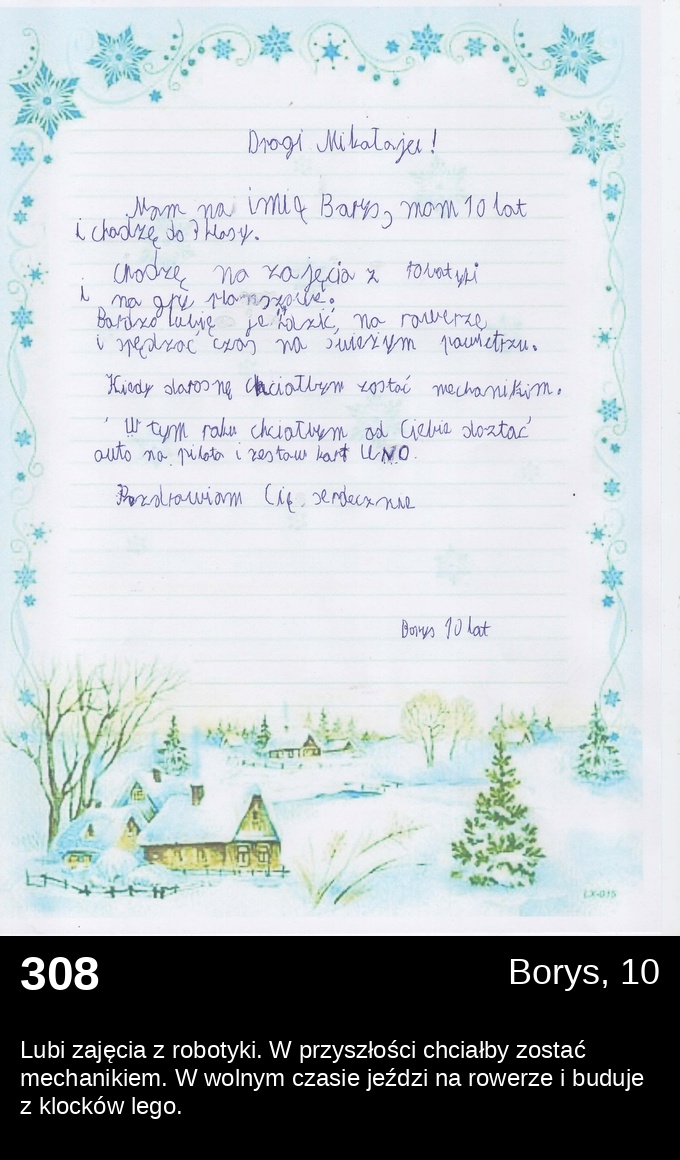 Drogi Mikołaju!
Mam na imię Borys, mam 10 lat
i chodzę do klasy.
Chodzę na zajęcia z robotyki
i na gry planszowe.
Bardzo lubię jeździć, na rowerze
i spędzać czas na świeżym powietrzu.
Kiedy dorosnę chciałbym zostać mechanikim.
W tym roku chciałbym od Ciebie dostać
auto na pilota i zestaw kart UNO.
Pozdrawiam Cię serdecznie
Borys 10 lat
LX-015
308
Borys, 10
Lubi zajęcia z robotyki. W przyszłości chciałby zostać
mechanikiem. W wolnym czasie jeździ na rowerze i buduje
z klocków lego.